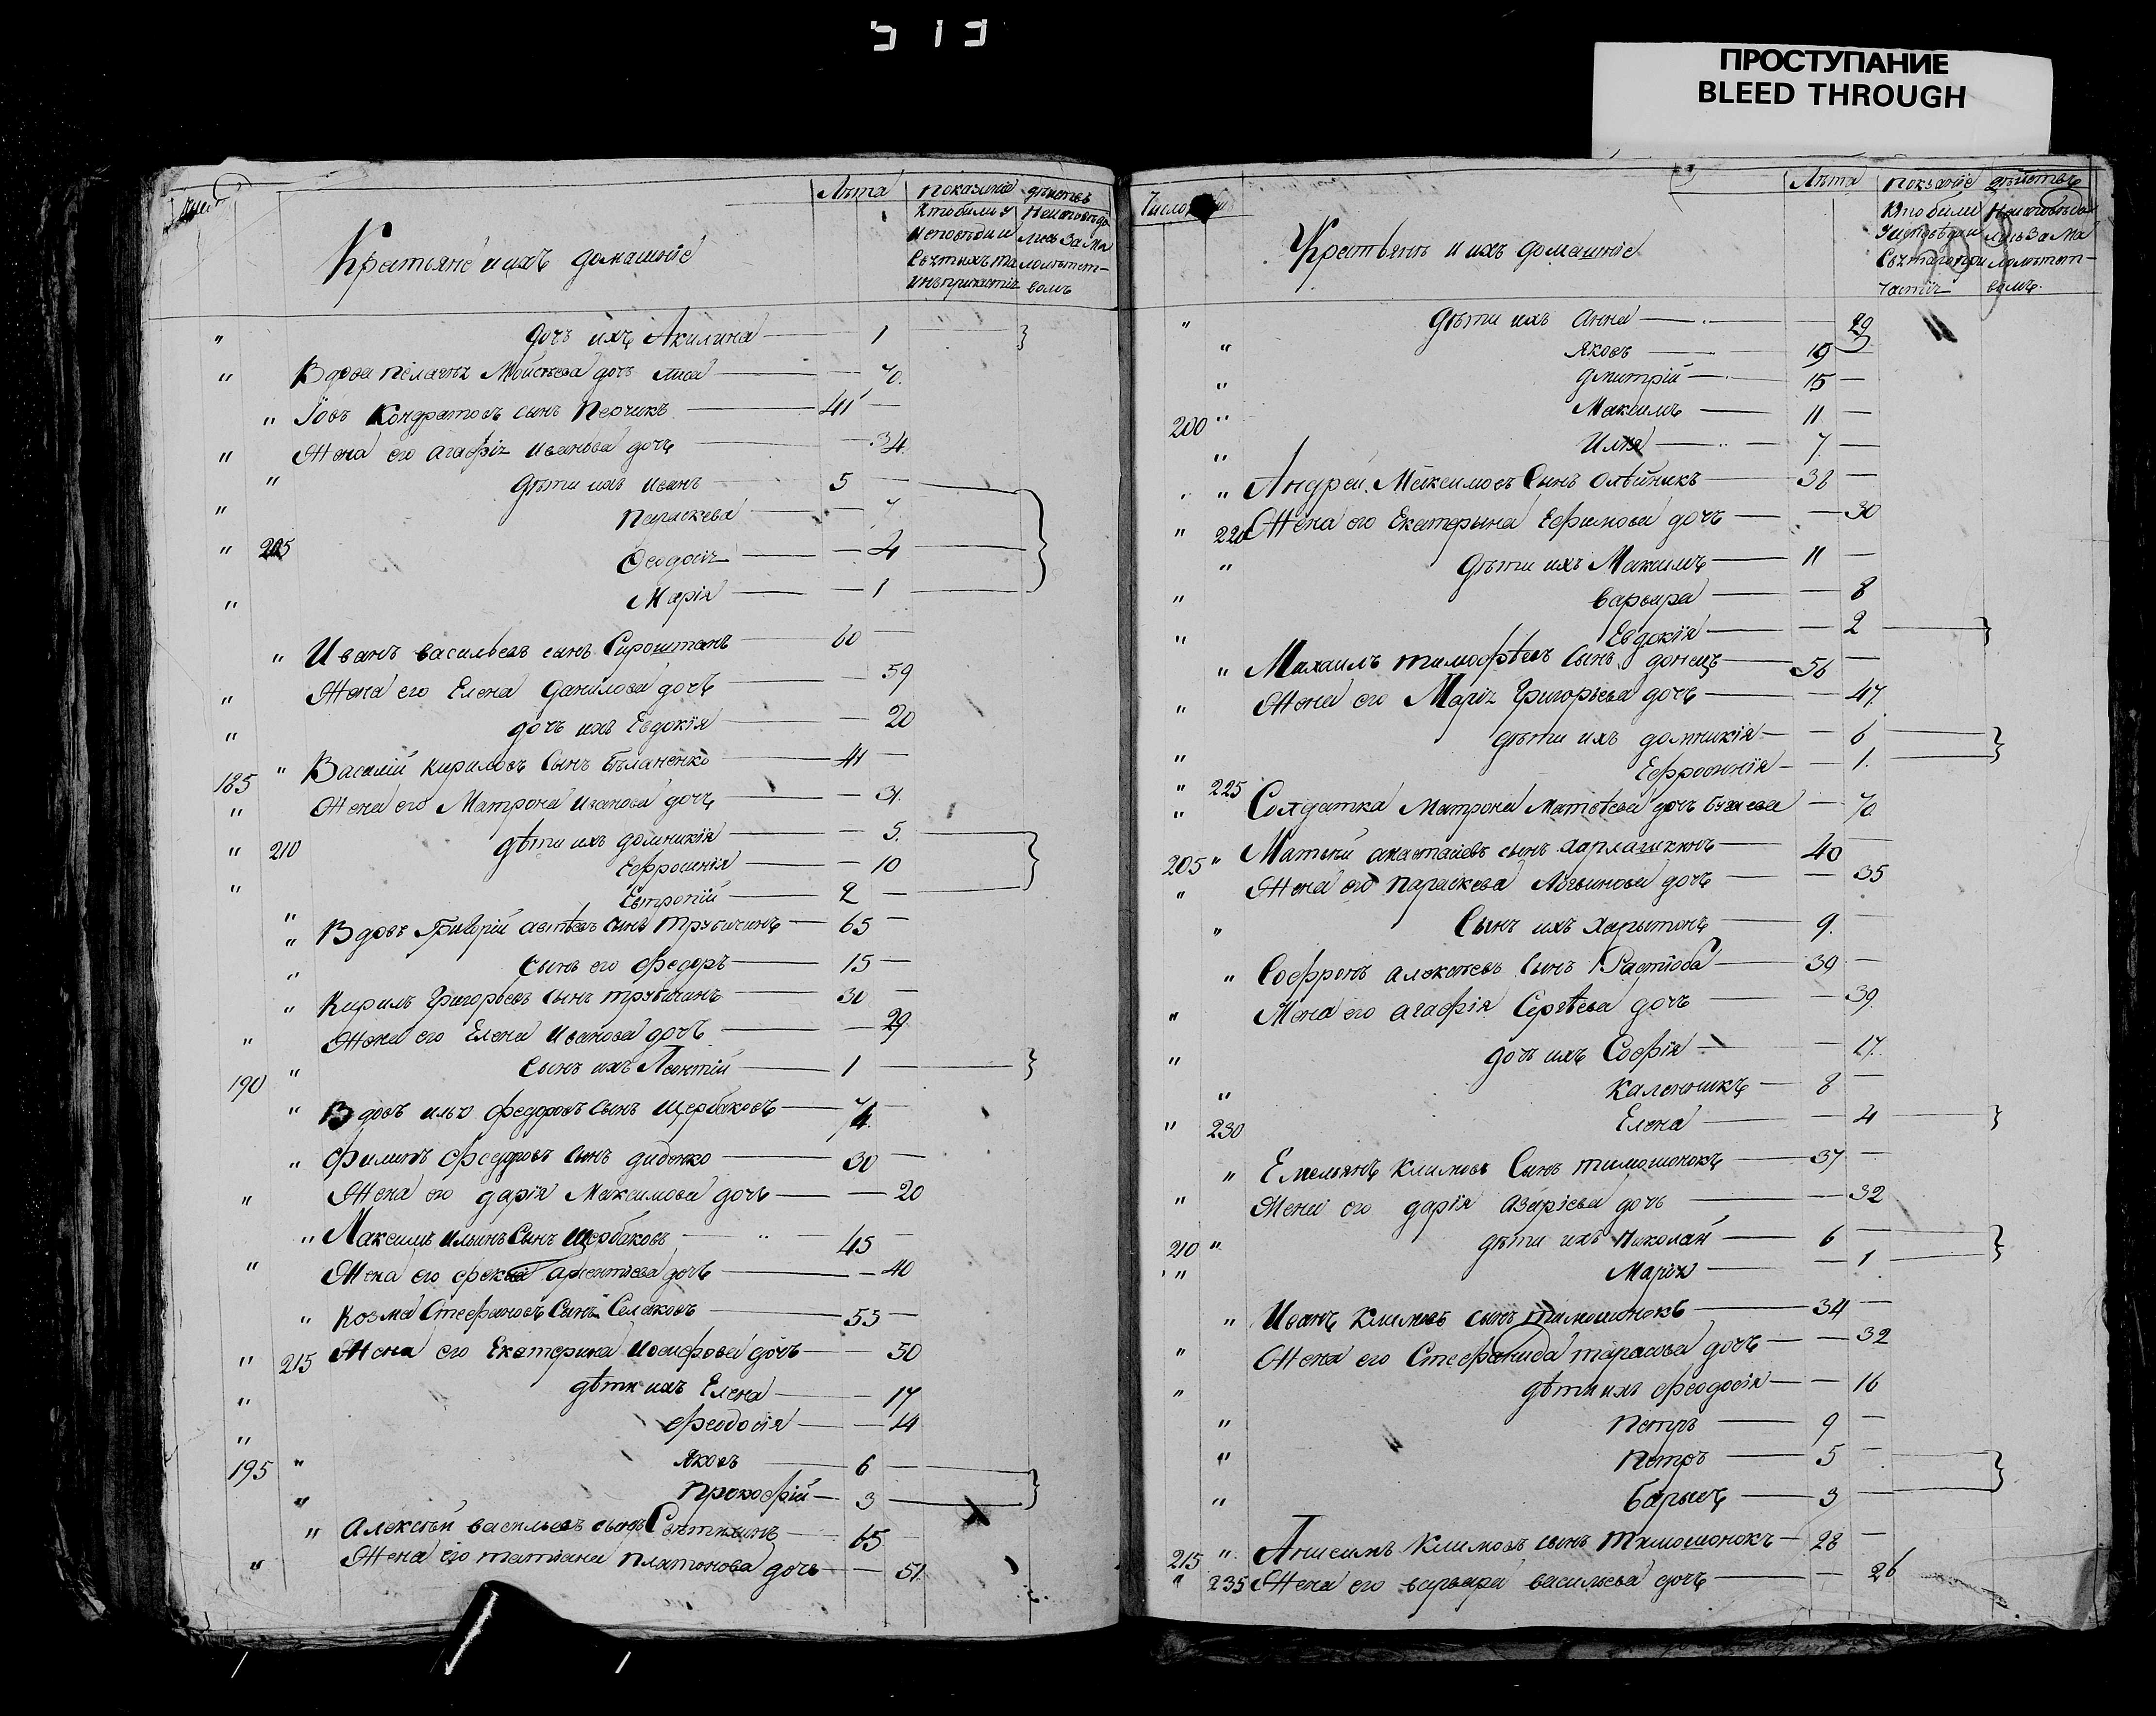 ПРОСТУПАНИЕ
BLEED THROUGH
Лѣта показание дѣйствъ
Крестьяне и ихъ домашние
дочь ихъ Акилина 1
" Вдова Пелагея Моисеева дочь 70
" Iовъ Кондратовъ сынъ Перчикъ 41
" Жена его Агафия Иванова дочь 34
" дѣти ихъ Иванъ 5
" Параскева 7
" 205 Феодосия 4
" Марія 1
" Иванъ Васильевъ сынъ Сироштанъ 60
" Жена его Елена Данилова дочь 59
" дочь ихъ Евдокія 20
185 " Василій Кириловъ сынъ Бѣланенко 41
" Жена его Матрона Иванова дочь 31
" 210 дѣти ихъ Домникія 5
" Ефросинія 10
" Евтропій 2
" Вдовъ Григорій сынъ Трубичинъ 65
" сынъ его Федоръ 15
" Кирилъ Григорьевъ сынъ Трубичинъ 30
" Жена его Елена Иванова дочь 29
190 " сынъ ихъ Леонтій 1
" Вдовъ Илья Федоровъ сынъ Щербаковъ 74
" Филипъ Федоровъ сынъ Диденко 30
" Жена его Дарія Максимова дочь 20
" Максимъ Ильинъ сынъ Щербаковъ 45
" Жена его Фекла дочь 40
" Козма Стефановъ сынъ 53
" 215 Жена его Екатерина Иосифова дочь 50
" дѣти ихъ Елена 17
" Феодосія 14
195 " Яковъ 6
" Прокофій 3
" Алексѣй Васильевъ сынъ 65
" Жена его Татіана Платонова дочь 51
Число Лѣта показание дѣйствъ
Крестьянѣ и ихъ домашние
" дѣти ихъ Анна 29
" Яковъ 19
" Дмитрій 15
200 " Максимъ 11
" Илья 7
" Андрей Максимовъ сынъ Олѣйникъ 38
" 220 Жена его Екатерына Ефимова дочь 30
" дѣти ихъ Максимъ 11
" Варвара 8
" Евдокія 2
" Михаилъ Тимофѣевъ сынъ Донецъ 56
" Жена его Марія Григорьева дочь 47
" дѣти ихъ Домникія 6
" 225 Ефросинія 1
" Солдатка Матрона Матвѣева дочь 70
205 " Матвѣй сынъ Харлашкинъ 40
" Жена его Параскева дочь 35
" Сынъ ихъ Харытонъ 9
" Софронъ Алексѣевъ сынъ 39
" Жена его Агафія Сергѣева дочь 39
" дочь ихъ Софія 17
" Каленникъ 8
" 230 Елена 4
" Емельянъ Климовъ сынъ Тимошонокъ 37
" Жена его Дарія Азаріева дочь 32
210 " дѣти ихъ Николай 6
" Марія 1
" Иванъ Климовъ сынъ Тимошонокъ 34
" Жена его Стефанида Тарасова дочь 32
" дѣти ихъ Феодосія 16
" Петръ 9
" Петръ 5
" Барысъ 3
215 " Анисимъ Климовъ сынъ Тимошонокъ 28
" 235 Жена его Варвара Васильева дочь 26